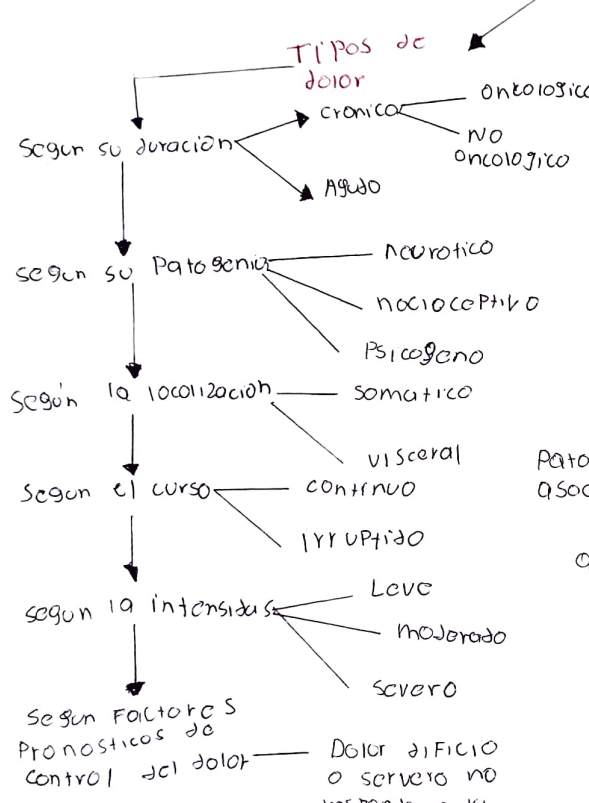 Tipos de
dolor
Segun su duracion
cronico
oncologico
No
oncologico
Agudo
segun su Patogenia
neurotico
nocioceptivo
Psicogeno
Según la localizacion
somatico
visceral
Segun el curso
continuo
Irruptido
Pato
asoc
segun la intensidas
Leve
moderado
severo
Segun Factores
Pronosticos de
control del dolor
Dolor dificio
o servero no